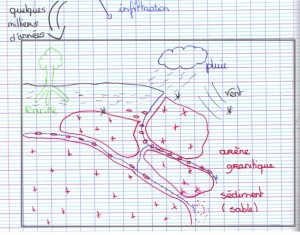 quelques
milliers
d'années
infiltration
pluie
vent
arène
granitique
sédiment
(sable)